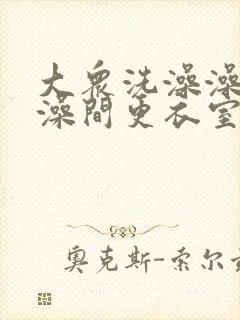 大眾洗澡澡
澡間更衣室
奧克斯-索尔